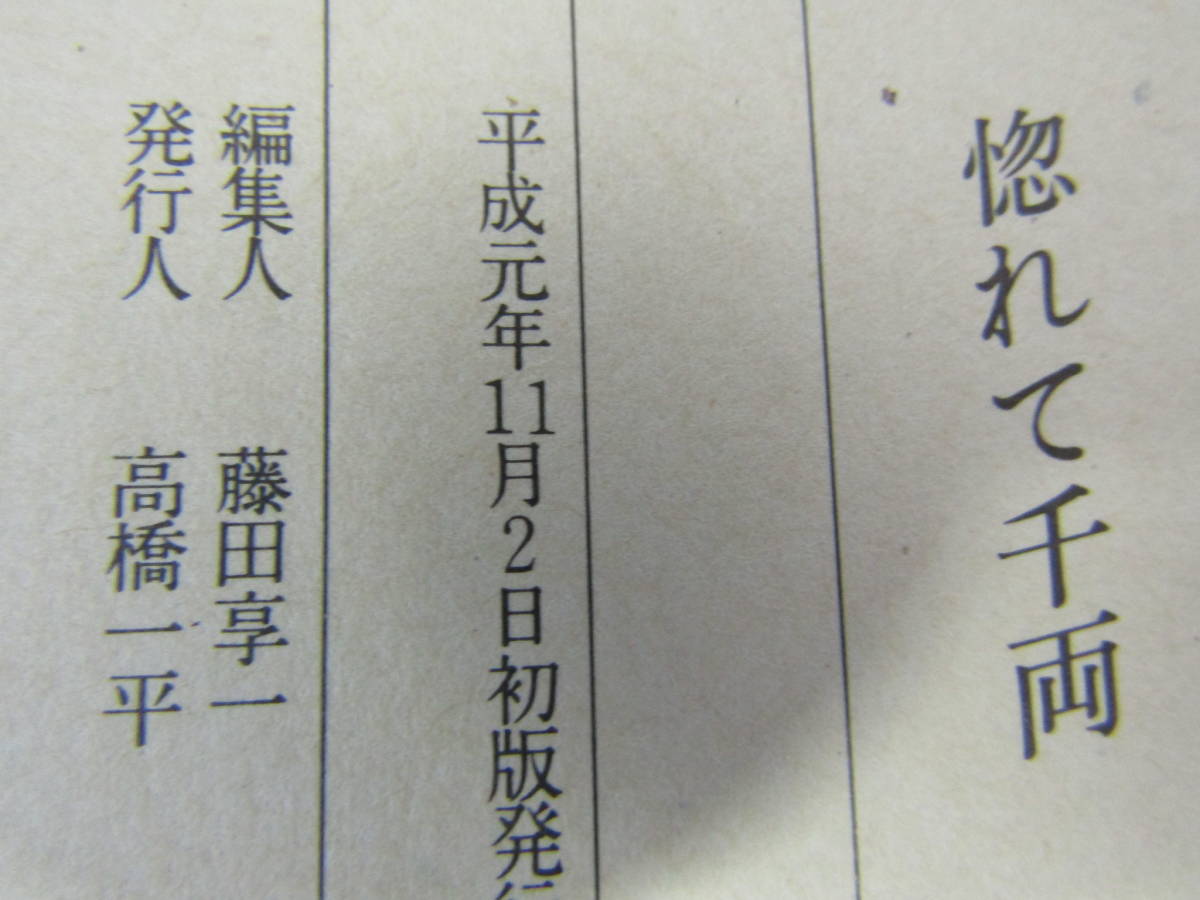 惚れて千両
平成元年11月2日初版発行
編集人 藤田享一
発行人 高橋一平